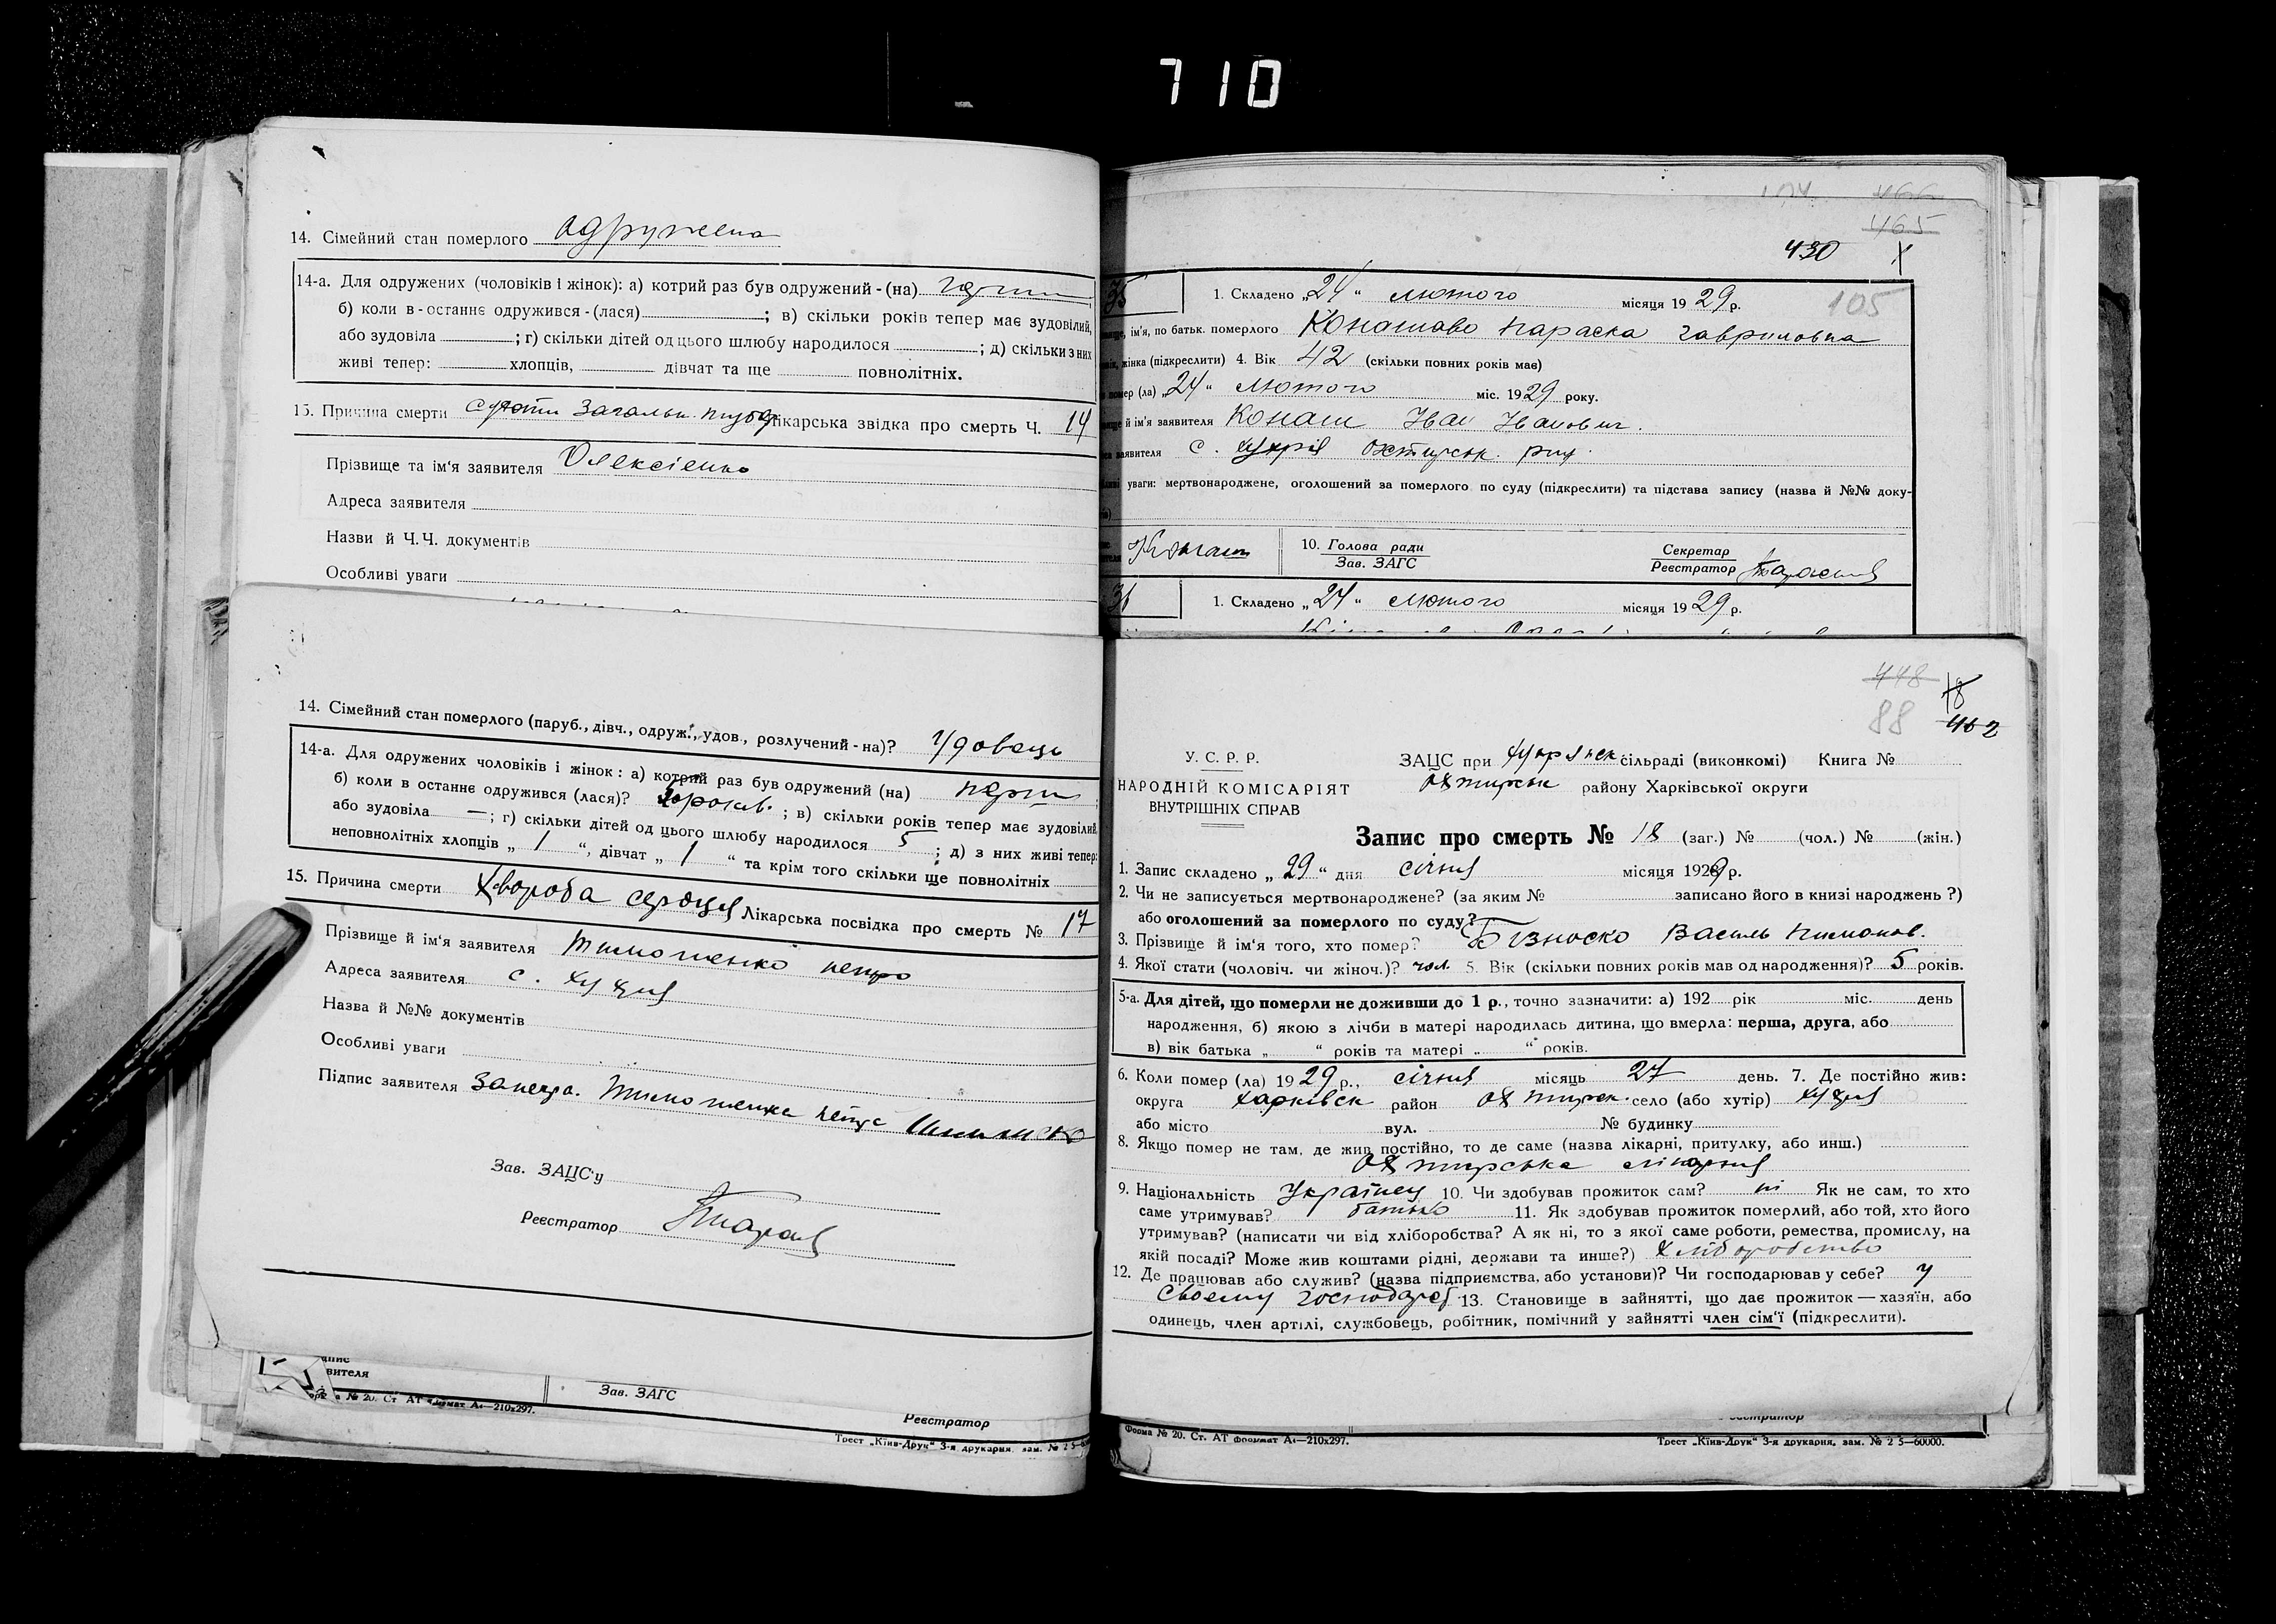 710
14. Сімейний стан померлого одружена
14-а. Для одружених (чоловіків і жінок): а) котрий раз був одружений - (на)
б) коли в - останнє одружився - (лася) ; в) скільки років тепер має зудовілий,
або зудовіла ; г) скільки дітей од цього шлюбу народилося ; д) скільки з них
живі тепер: хлопців, дівчат та ще повнолітніх.
15. Причина смерти лікарська звідка про смерть Ч. 14
Прізвище та ім'я заявителя Олексієнко
Адреса заявителя
Назви й Ч.Ч. документів
Особливі уваги
14. Сімейний стан померлого (паруб., дівч., одруж., удов., розлучений - на)? Удовець
14-а. Для одружених чоловіків і жінок: а) котрий раз був одружений (на) перш
б) коли в останнє одружився (лася)? років ; в) скільки років тепер має зудовілий
або зудовіла — ; г) скільки дітей од цього шлюбу народилося 5 ; д) з них живі тепер:
неповнолітніх хлопців „ 1 “, дівчат „ 1 “ та крім того скільки ще повнолітніх
15. Причина смерти Хвороба сердця Лікарська посвідка про смерть № 17
Прізвище й ім'я заявителя Тимошенко Петро
Адреса заявителя с. Хухря
Назва й №№ документів
Особливі уваги
Підпис заявителя За Тимошенка
Зав. ЗАЦС'у
Реєстратор
апис
вителя
Зав. ЗАГС
№ 20. Ст АТ формат А4—210х297.
Реєстратор
Трест „Київ-Друк“ 3-я друкарня, зам. № 2 5—
466
465
430
105
35
1. Складено „24“ лютого місяця 1929 р.
ім'я, по батьк. померлого Конашово Параска Гавриловна
жінка (підкреслити) 4. Вік 42 (скільки повних років має)
помер (ла) „24“ лютого міс. 1929 року.
й ім'я заявителя Конаш Іван Іванович.
заявителя с. Хухря Охтирськ. рну.
уваги: мертвонароджене, оголошений за померлого по суду (підкреслити) та підстава запису (назва й №№ доку-
Конаш
10. Голова ради
Зав. ЗАГС
Секретар
Реєстратор
36
1. Складено „24“ лютого місяця 1929 р.
448
18
88
462
У. С. Р. Р.
НАРОДНІЙ КОМІСАРІЯТ
ВНУТРІШНІХ СПРАВ
ЗАЦС при Хухрянск. сільраді (виконкомі) Книга №
Охтирськ району Харківської округи
Запис про смерть № 18 (заг.) № (чол.) № (жін.)
1. Запис складено „29“ дня січня місяця 1929 р.
2. Чи не записується мертвонароджене? (за яким № записано його в книзі народжень ?)
або оголошений за померлого по суду?
3. Прізвище й ім'я того, хто помер? Бізноско Василь
4. Якої стати (чоловіч. чи жіноч.)? чол. 5. Вік (скільки повних років мав од народження)? 5 років.
5-а. Для дітей, що померли не доживши до 1 р., точно зазначити: а) 192 рік міс. день
народження, б) якою з лічби в матері народилась дитина, що вмерла: перша, друга, або
в) вік батька „ “ років та матері „ “ років.
6. Коли помер (ла) 1929 р., січня місяць 27 день. 7. Де постійно жив:
округа Харківск район Охтирск. село (або хутір) Хухря
або місто вул. № будинку
8. Якщо помер не там, де жив постійно, то де саме (назва лікарні, притулку, або инш.)
Охтирська лікарня
9. Національність Українец 10. Чи здобував прожиток сам? ні Як не сам, то хто
саме утримував? батько 11. Як здобував прожиток померлий, або той, хто його
утримував? (написати чи від хліборобства? А як ні, то з якої саме роботи, ремества, промислу, на
якій посаді? Може жив коштами рідні, держави та инше?) хліборобство
12. Де працював або служив? (назва підприємства, або установи)? Чи господарював у себе? У
своєму господарс. 13. Становище в зайнятті, що дає прожиток — хазяїн, або
одинець, член артілі, службовець, робітник, помічний у зайнятті член сім'ї (підкреслити).
Форма № 20. Ст. АТ формат А4—210х297.
Трест „Київ-Друк“ 3-я друкарня, зам. № 2 5—60000.